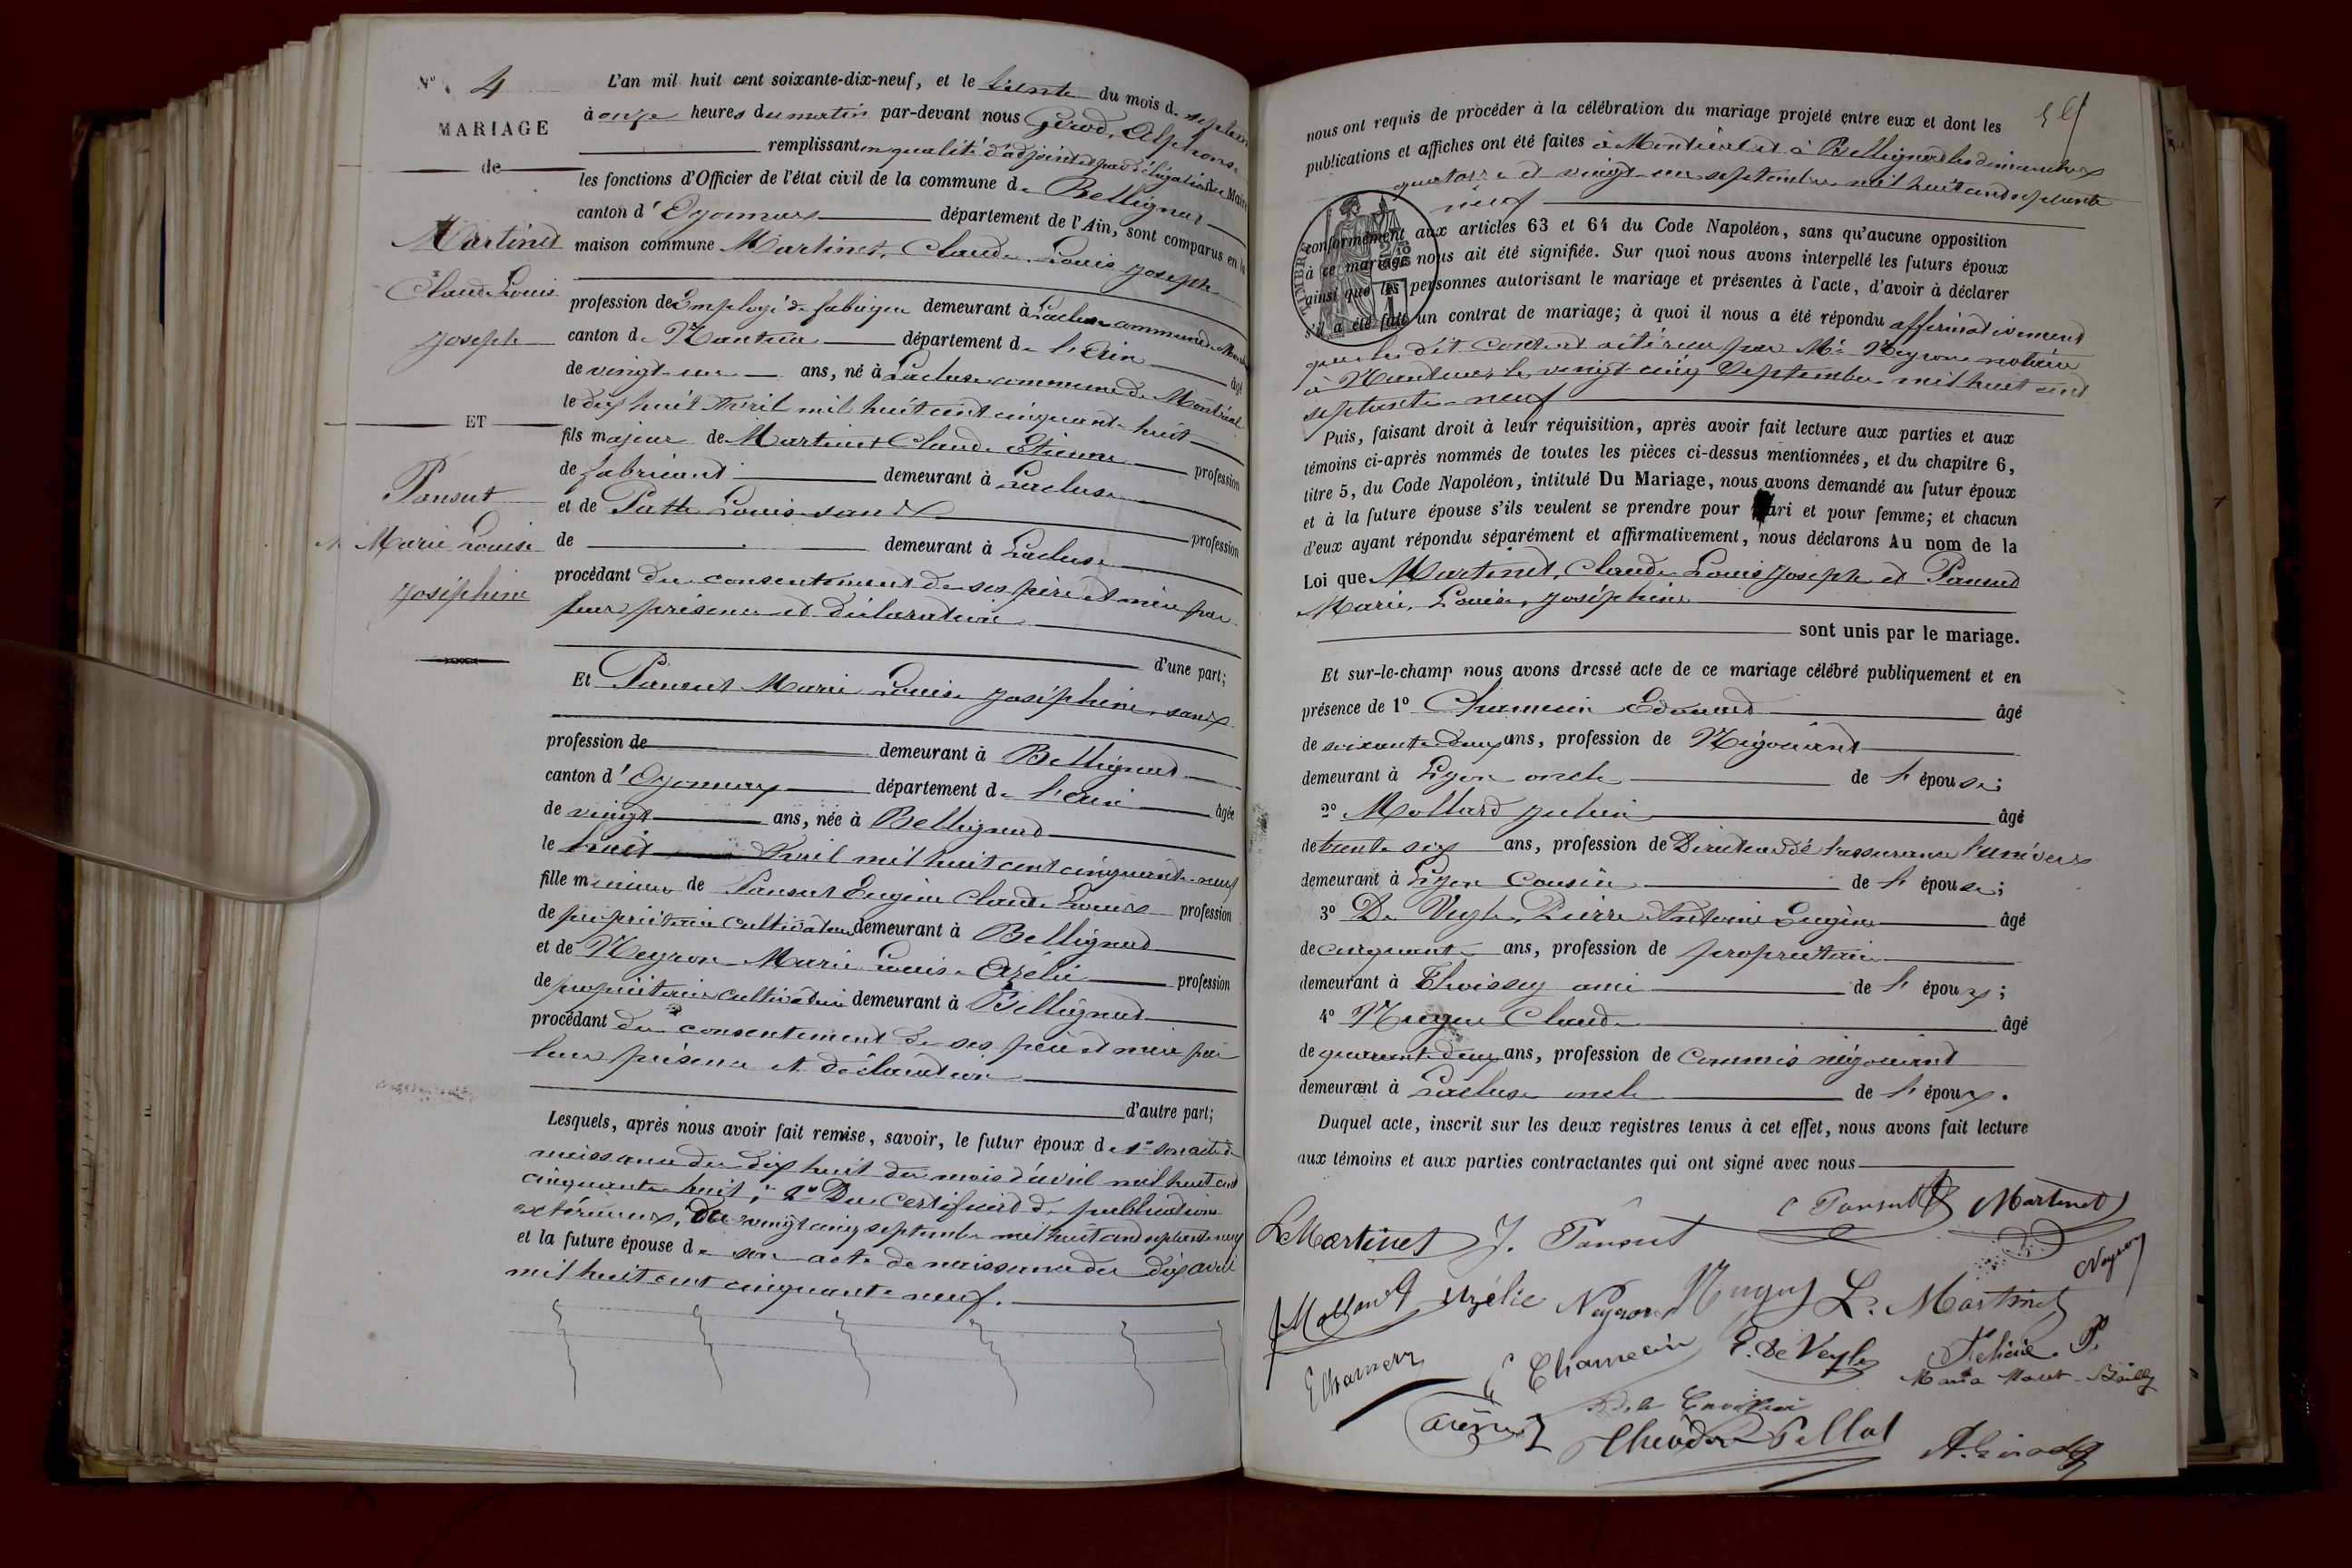 N° 4
MARIAGE
de
Martinet
Claude Louis
Joseph
ET
Pansut
Marie Louise
Joséphine
L'an mil huit cent soixante-dix-neuf, et le trente du mois de septembre
à onze heures du matin par-devant nous Girod, Alphonse
remplissant en qualité d'adjoint et par délégation du Maire
les fonctions d'Officier de l'état civil de la commune de Bellignat
canton d'Oyonnax département de l'Ain, sont comparus en la
maison commune Martinet, Claude Louis Joseph
profession de Employé de fabrique demeurant à Lacluse commune de
canton de Nantua département de l'Ain âgé
de vingt-un ans, né à Lacluse commune de Montréal
le dix huit Avril mil huit cent cinquante huit
fils majeur de Martinet Claude Etienne profession
de fabricant demeurant à Lacluse
et de Patte Louise sans profession
de demeurant à Lacluse
procédant du consentement de ses père et mère par
leur présence et déclaration
d'une part;
Et Pansut Marie Louise Joséphine, sans
profession de demeurant à Bellignat
canton d'Oyonnax département de l'Ain âgée
de vingt ans, née à Bellignat
le huit Avril mil huit cent cinquante-neuf
fille mineure de Pansut Eugène Claude Louis profession
de propriétaire cultivateur demeurant à Bellignat
et de Neyron Marie Louise Azélie profession
de propriétaire cultivatrice demeurant à Bellignat
procédant du consentement de ses père et mère par
leur présence et déclaration
d'autre part;
Lesquels, après nous avoir fait remise, savoir, le futur époux de 1° son acte de
naissance du dix huit du mois d'avril mil huit cent
cinquante huit; 2° Du certificat de publications
extérieures, du vingt cinq septembre mil huit cent septante neuf
et la future épouse de son acte de naissance du dix avril
mil huit cent cinquante neuf.
nous ont requis de procéder à la célébration du mariage projeté entre eux et dont les
publications et affiches ont été faites à Montréal et à Bellignat les dimanches
quatorze et vingt un septembre mil huit cent septante
neuf
conformément aux articles 63 et 64 du Code Napoléon, sans qu'aucune opposition
à ce mariage nous ait été signifiée. Sur quoi nous avons interpellé les futurs époux
ainsi que les personnes autorisant le mariage et présentes à l'acte, d'avoir à déclarer
s'il a été fait un contrat de mariage; à quoi il nous a été répondu affirmativement
que le dit contrat a été reçu par Me Neyron notaire
à Nantua, le vingt cinq Septembre mil huit cent
septante-neuf
Puis, faisant droit à leur réquisition, après avoir fait lecture aux parties et aux
témoins ci-après nommés de toutes les pièces ci-dessus mentionnées, et du chapitre 6,
titre 5, du Code Napoléon, intitulé Du Mariage, nous avons demandé au futur époux
et à la future épouse s'ils veulent se prendre pour mari et pour femme; et chacun
d'eux ayant répondu séparément et affirmativement, nous déclarons Au nom de la
Loi que Martinet, Claude Louis Joseph et Pansut
Marie, Louise, Joséphine
sont unis par le mariage.
Et sur-le-champ nous avons dressé acte de ce mariage célébré publiquement et en
présence de 1° Chamecin Edouard âgé
de soixante deux ans, profession de Négociant
demeurant à Lyon oncle de l'épouse;
2° Mollard Julien âgé
de trente six ans, profession de Directeur de l'assurance l'univers
demeurant à Lyon Cousin de l'épouse;
3° De Veyle, Pierre Antoine Eugène âgé
de cinquante ans, profession de propriétaire
demeurant à Thoissey ami de l'époux;
4° Nugue Claude âgé
de quarante deux ans, profession de Commis négociant
demeurant à Lacluse oncle de l'époux.
Duquel acte, inscrit sur les deux registres tenus à cet effet, nous avons fait lecture
aux témoins et aux parties contractantes qui ont signé avec nous
Pansut Martinet
L Martinet J. Pansut
Neyron
Mollard Azélie Neyron Nugue L. Martinet
E Chamecin E. De Veyle Félicie P.
Maria
Théodore Pellat A. Girod